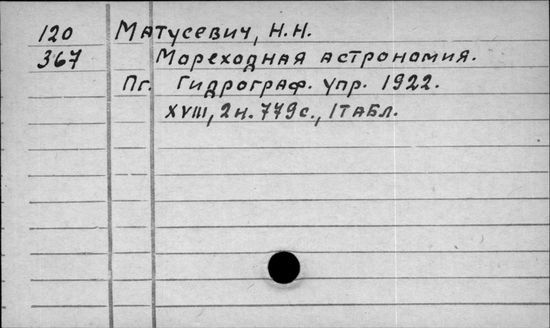 120 Матусевич, Н.Н.
367 Мореходная астрономия.
Пг. Гидрограф. упр. 1922.
XVIII, 2н. 779с., 1 табл.